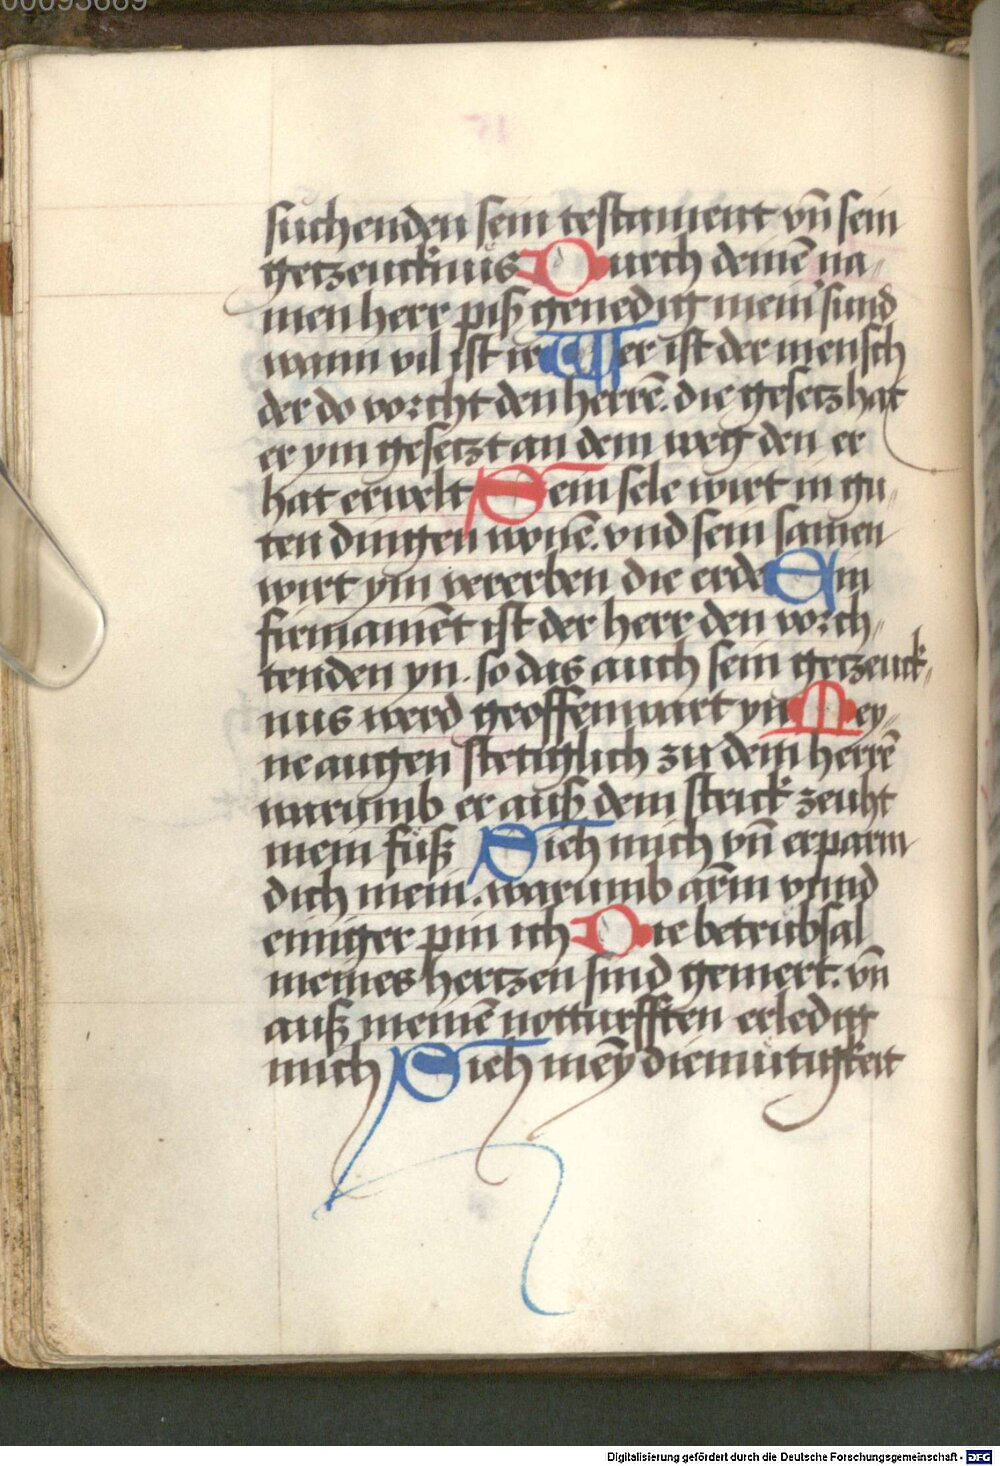 00093669
suchenden sein testament vn̄ sein
getzeucknus Durch deinē na„
men herr piß genedig mein' sund
wann vil ist ir Wer ist der mensch
der do vorcht den herrē. die gesetz hat
er ym gesetzt an dem weg den er
hat erwelt Sein sele wirt in gu„
ten dingen wonē. vnd sein samen
wirt ym vererben die erde Ein
firmamēt ist der herr den vorch„
tenden yn. so das auch sein getzeuck„
nus werd geoffenwart yn Mey„
ne augen stetiglich zu dem herrē
warumb er auß dem strick zeuht
mein füß Sieh mich vn̄ erparm
dich mein. warumb arm vnnd
einiger pin ich Die betrübsal
meines hertzen sind gemert. vn̄
auß meinē notturfften erledig
mich Sieh mey̅ diemütigkeit
Digitalisierung gefördert durch die Deutsche Forschungsgemeinschaft - DFG